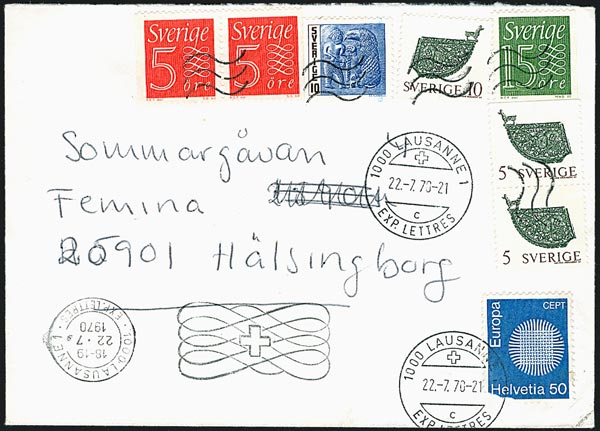 Sverige
5
öre
Sverige
5
öre
SVERIGE
10
SVERIGE 10
Sverige
15
öre
5 SVERIGE
5 SVERIGE
1000 LAUSANNE 1
22.-7.70-21
c
EXP. LETTRES
Sommargåvan
Femina
25901 Hälsingborg
Europa
CEPT
Helvetia 50
1000 LAUSANNE 1
22.-7.70-21
c
EXP. LETTRES
1000 LAUSANNE 1 · EXP. LETTRES
18-19
22·7
1970